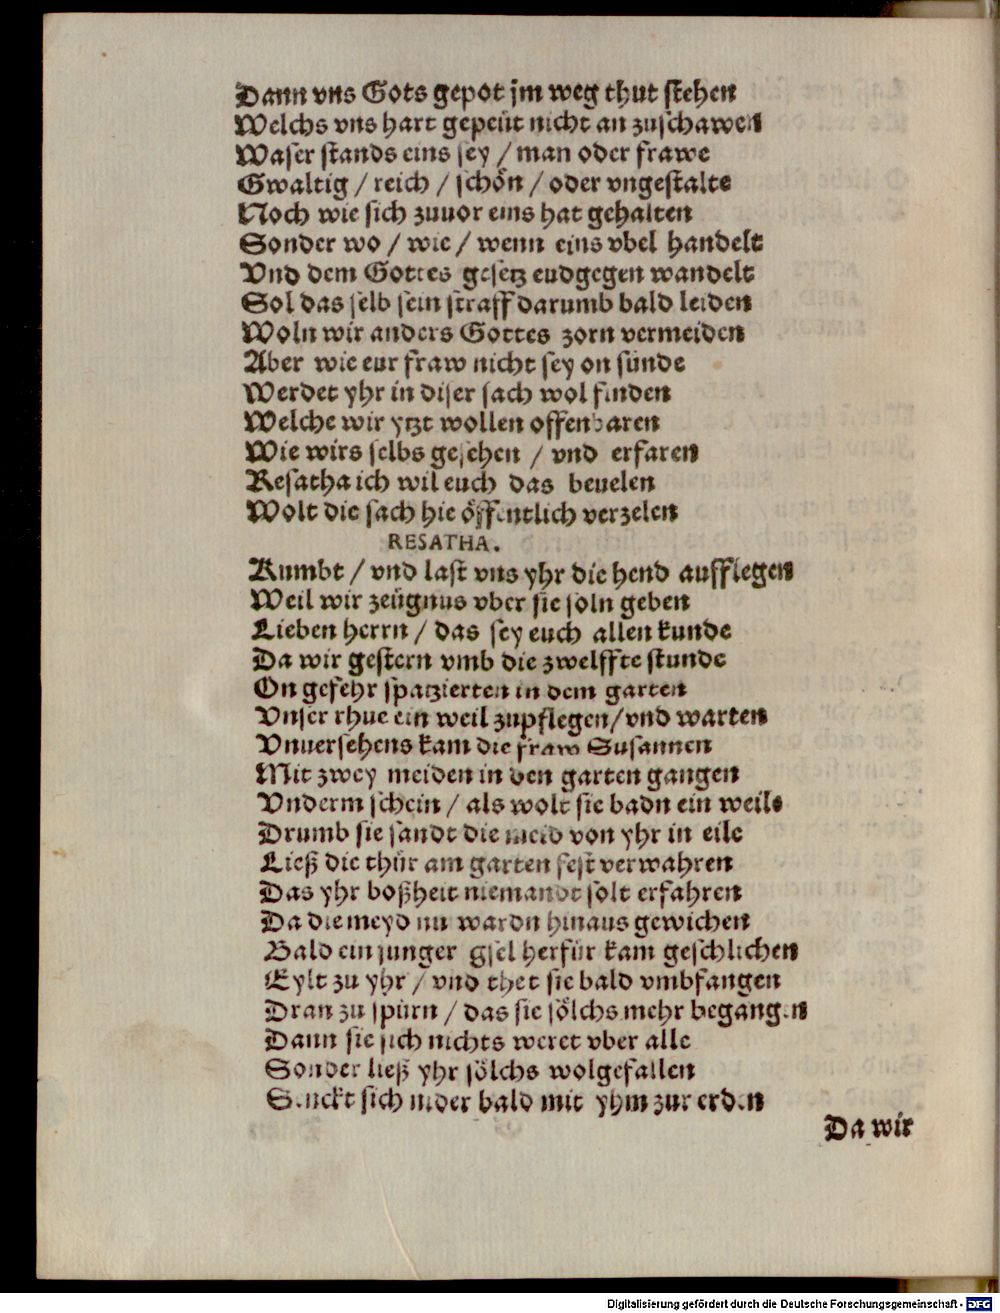 Dann vns Gots gepot jm weg thut stehen
Welchs vns hart gepeüt nicht an zuschawen
Waser stands eins sey / man oder frawe
Gwaltig / reich / schön / oder vngestalte
Noch wie sich zuuor eins hat gehalten
Sonder wo / wie / wenn eins vbel handelt
Vnd dem Gottes gesetz endgegen wandelt
Sol das selb sein straff darumb bald leiden
Woln wir anders Gottes zorn vermeiden
Aber wie eur fraw nicht sey on sünde
Werdet yhr in diser sach wol finden
Welche wir ytzt wollen offenbaren
Wie wirs selbs gesehen / vnd erfaren
Resatha ich wil euch das beuelen
Wolt die sach hie öffentlich verzelen
RESATHA.
Kumbt / vnd last vns yhr die hend aufflegen
Weil wir zeügnus vber sie soln geben
Lieben herrn / das sey euch allen kunde
Da wir gestern vmb die zwelffte stunde
On gefehr spatzierten in dem garten
Vnser rhue ein weil zupflegen/vnd warten
Vnuersehens kam die fraw Susannen
Mit zwey meiden in den garten gangen
Vnderm schein / als wolt sie badn ein weile
Drumb sie sandt die meid von yhr in eile
Ließ die thür am garten fest verwahren
Das yhr boßheit niemandt solt erfahren
Da die meyd nu wardn hinaus gewichen
Bald ein junger gsel herfür kam geschlichen
Eylt zu yhr / vnd thet sie bald vmbfangen
Dran zu spürn / das sie sölchs mehr begangen
Dann sie sich nichts weret vber alle
Sonder ließ yhr sölchs wolgefallen
Senckt sich nider bald mit yhm zur erden
Da wir
Digitalisierung gefördert durch die Deutsche Forschungsgemeinschaft - DFG